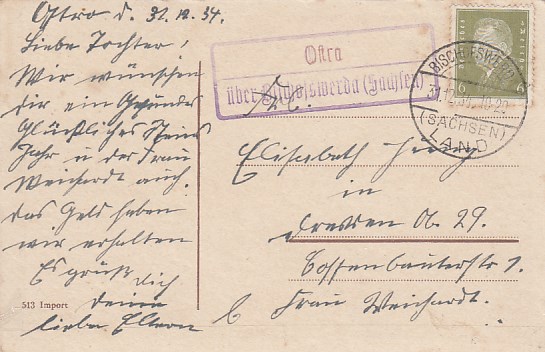 Ostro d. 31.12.34.
Liebe Tochter!
Wir wünschen
dir ein Gesundes
Glückliches Neues
Jahr u der Frau
Weichardt auch.
Das Geld haben
wir erhalten
Es grüßt dich
deine
liebe Eltern
513 Import
Ostra
über Bischofswerda (Sachsen)
BISCHOFSWERDA
(SACHSEN)
LAND
6
6
Elisabeth
in
Dresden Ob. 29.
b Frau Weichardt.